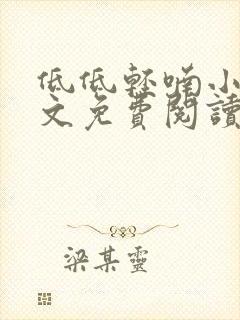 低低輕喃小
文免費閱讀
梁某靈